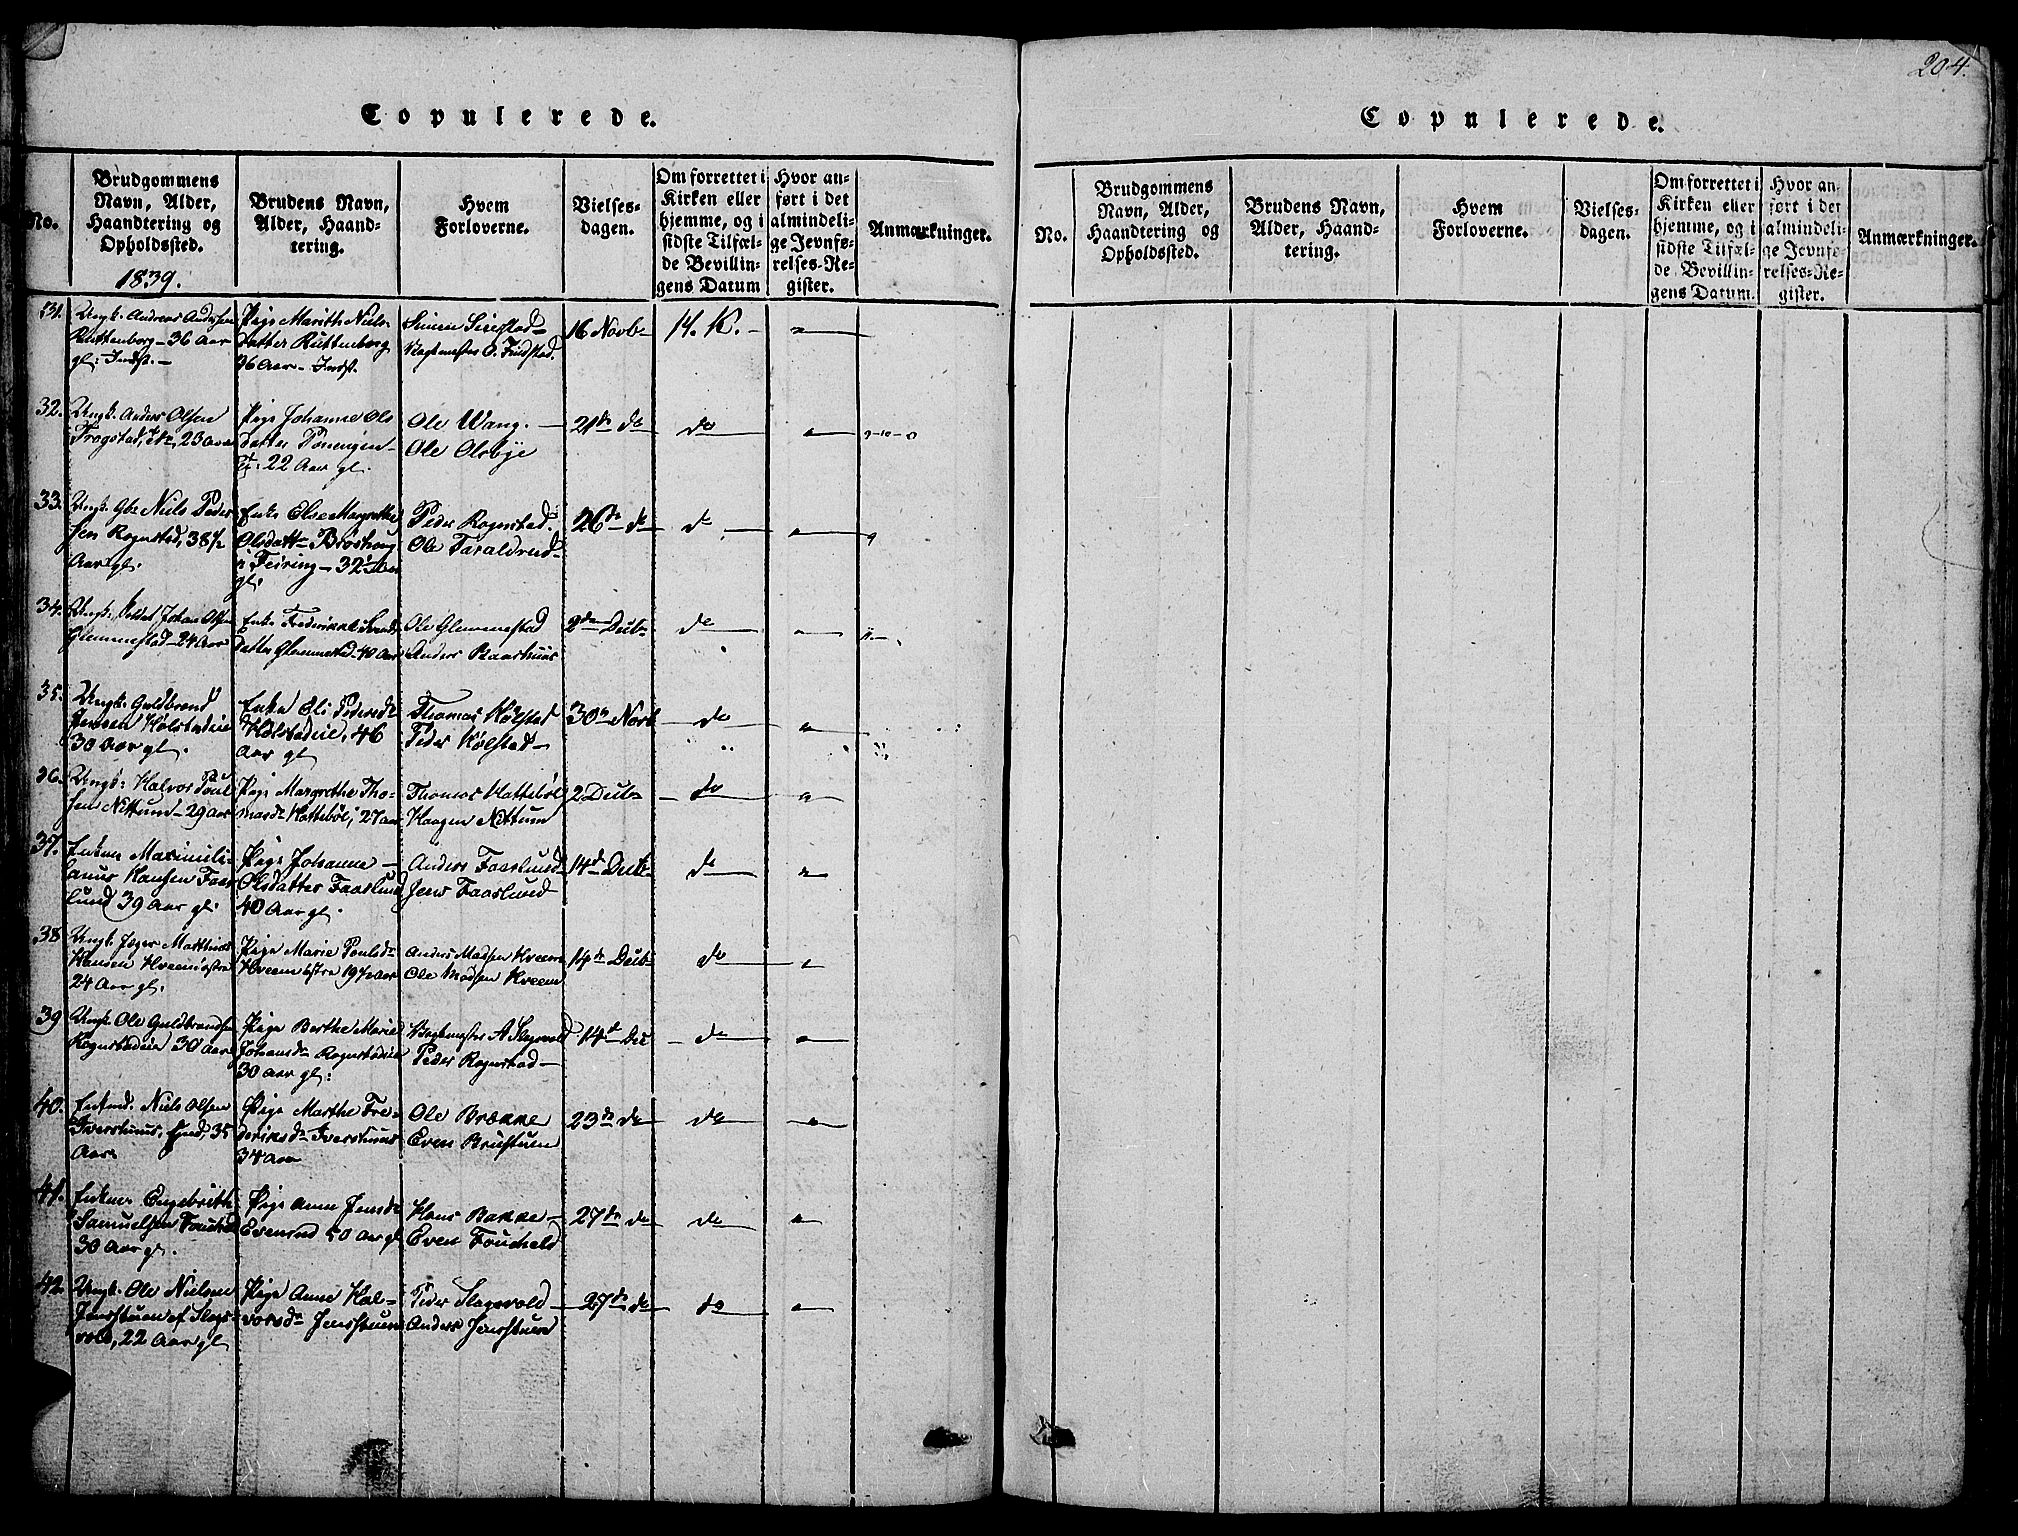 204.
Copulerede.
No.
Brudgommens
Navn, Alder,
Haandtering og
Opholdssted.
1839.
Brudens Navn,
Alder, Haand-
tering.
Hvem
Forloverne.
Vielses-
dagen.
Om forrettet i
Kirken eller
hjemme, og i
sidste Tilfæl-
de Bevillin-
gens Datum
Hvor an-
ført i det
almindeli-
ge Jevnfø-
relses-Re-
gister.
Anmærkninger.
31.
Ungk: Andreas Andersen
Ruttenborg - 36 Aar
gl: Indst. -
Pige Marithe Niels-
datter Ruttenborg
36 Aar - Indst.
Simen Sivestad -
16 Novb
H. K.
32.
Ungk: Anders Olsen
Trogstad, 23 Aar
Pige Johanne Ols
datter Ponengen
22 Aar gl.
Ole Wang. -
Ole Olsbye
21de do
do
33.
Ungk: Gbr Niels Peder
sen Rognstad, 38 1/2
Aar gl.
Enke Else Margrethe
Olsdatt Brøstoug
i Feiring - 32 Aar
gl.
Peder Rognstad.
Ole Taraldrud
26de do
do
34.
Ungk: Johan Olsen
Glemmestad - 24 Aar
Enke Frederikke
Datter Glemmestad - 40 Aar
Ole Glemmestad
Anders Kaarstuus
2den Decb
do
35.
Ungk: Guldbrand
Jensen Kølstadeie
30 Aar gl.
Enke Eli Pedersd
Kølstadeie, 46
Aar gl
Thomas Kølstad
Peder Kølstad -
30 Novb
do
36.
Ungk: Halvor Poul
sen Nittum - 29 Aar
Pige Margrethe Tho-
masd Hattebøl, 27 Aar
Thomas Hattebøl
Haagen Nettum
2 Decb
do
37.
Enkem Maximili-
anus Hansen Faas
lund 39 Aar gl.
Pige Johanne -
Olsdatter Faaslund
40 Aar gl.
Anders Faaslund
Jens Faaslund
14d Decb
do
38
Ungk: Jæger Matthias
Hansen Kveem østre
24 Aar gl.
Pige Marie Poulsd
Kveem østre 19 1/2 Aar
Anders Madsen Kveem
Ole Madsen Kveem
14de Decb
do
39
Ungk: Ole Guldbrandsen
Rognstadeie 30 Aar
Pige Berthe Marie
Johansd Rognstadeie
30 Aar gl:
Vagtmester A Slagsvold
Peder Rognstad -
14d Dec
do
40.
Enkmd. Niels Olsen
Iverstuus, 35
Aar
Pige Marthe Fre-
deriksd Iverstuus
34 Aar
Ole Brække
Even Brustuen
23de do
do
41.
Enkem Engebreth
Samuelsen Fouchald
30 Aar gl.
Pige Anne Jensd
Evenrud 50 Aar gl
Hans Bakke -
Even Fouchald
27de do
do
42.
Ungk: Ole Nielsen
Jensstuen af Slags-
vold, 22 Aar gl
Pige Anne Hal-
vorsd Jensstuen
Peder Slagsvold
Anders Jensstuen
27de do
do
Copulerede.
No.
Brudgommens
Navn, Alder,
Haandtering og
Opholdssted.
Brudens Navn,
Alder, Haand-
tering.
Hvem
Forloverne.
Vielses-
dagen.
Om forrettet i
Kirken eller
hjemme, og i
sidste Tilfæl-
de Bevillin-
gens Datum.
Hvor an-
ført i det
almindeli-
ge Jevnfø-
relses-Re-
gister.
Anmærkninger.